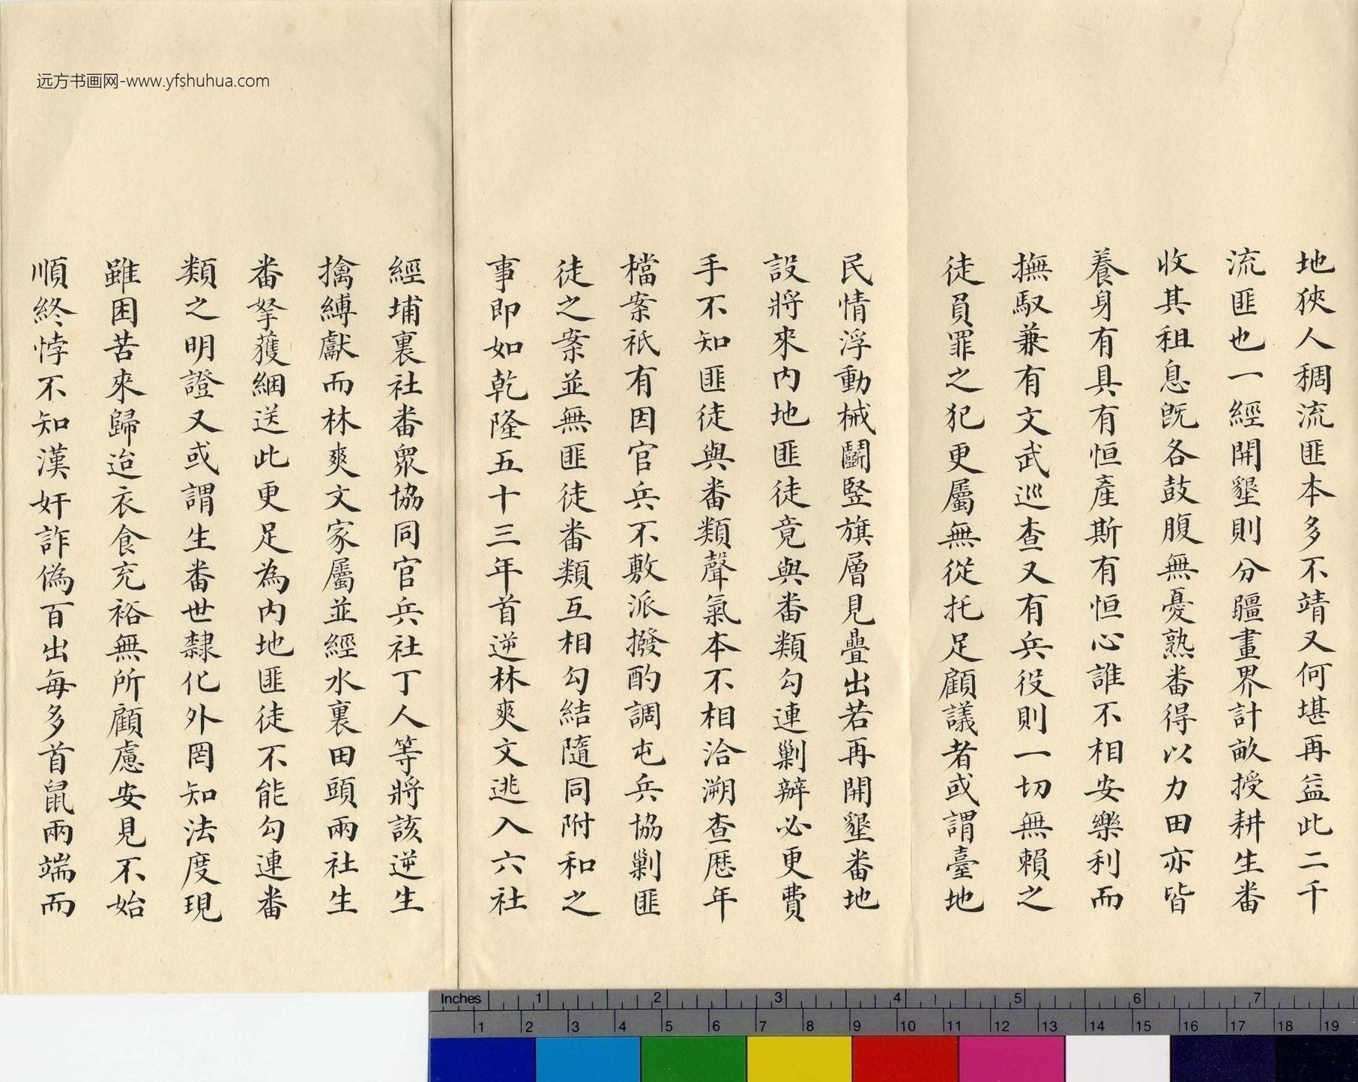 远方书画网-www.yfshuhua.com
地狹人稠流匪本多不靖又何堪再益此二千
流匪也一經開墾則分疆畫界計畝授耕生番
收其租息既各鼓腹無憂熟番得以力田亦皆
養身有具有恒產斯有恒心誰不相安樂利而
撫馭兼有文武巡查又有兵役則一切無賴之
徒負罪之犯更屬無從托足顧議者或謂臺地
民情浮動械鬬竪旗層見疊出若再開墾番地
設將來內地匪徒竟與番類勾連剿辦必更費
手不知匪徒與番類聲氣本不相洽溯查歷年
檔案祇有因官兵不敷派撥酌調屯兵協剿匪
徒之案並無匪徒番類互相勾結隨同附和之
事即如乾隆五十三年首逆林爽文逃入六社
經埔裏社番眾協同官兵社丁人等將該逆生
擒縛獻而林爽文家屬並經水裏田頭兩社生
番拏獲綑送此更足為內地匪徒不能勾連番
類之明證又或謂生番世隸化外罔知法度現
雖困苦來歸迨衣食充裕無所顧慮安見不始
順終悖不知漢奸詐偽百出每多首鼠兩端而
Inches 1 2 3 4 5 6 7
1 2 3 4 5 6 7 8 9 10 11 12 13 14 15 16 17 18 19